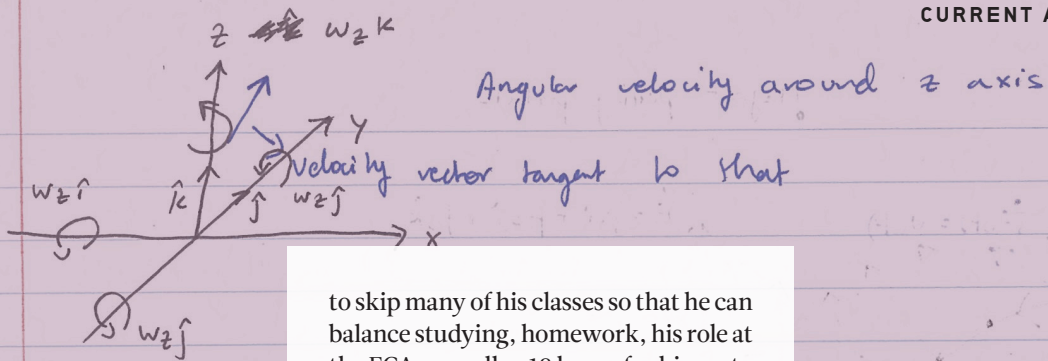 CURRENT
z ω_z k
Angular velocity around z axis
y
velocity vector tangent to that
ω_z î
k̂
ĵ
ω_z ĵ
x
ω_z ĵ
to skip many of his classes so that he can
balance studying, homework, his role at